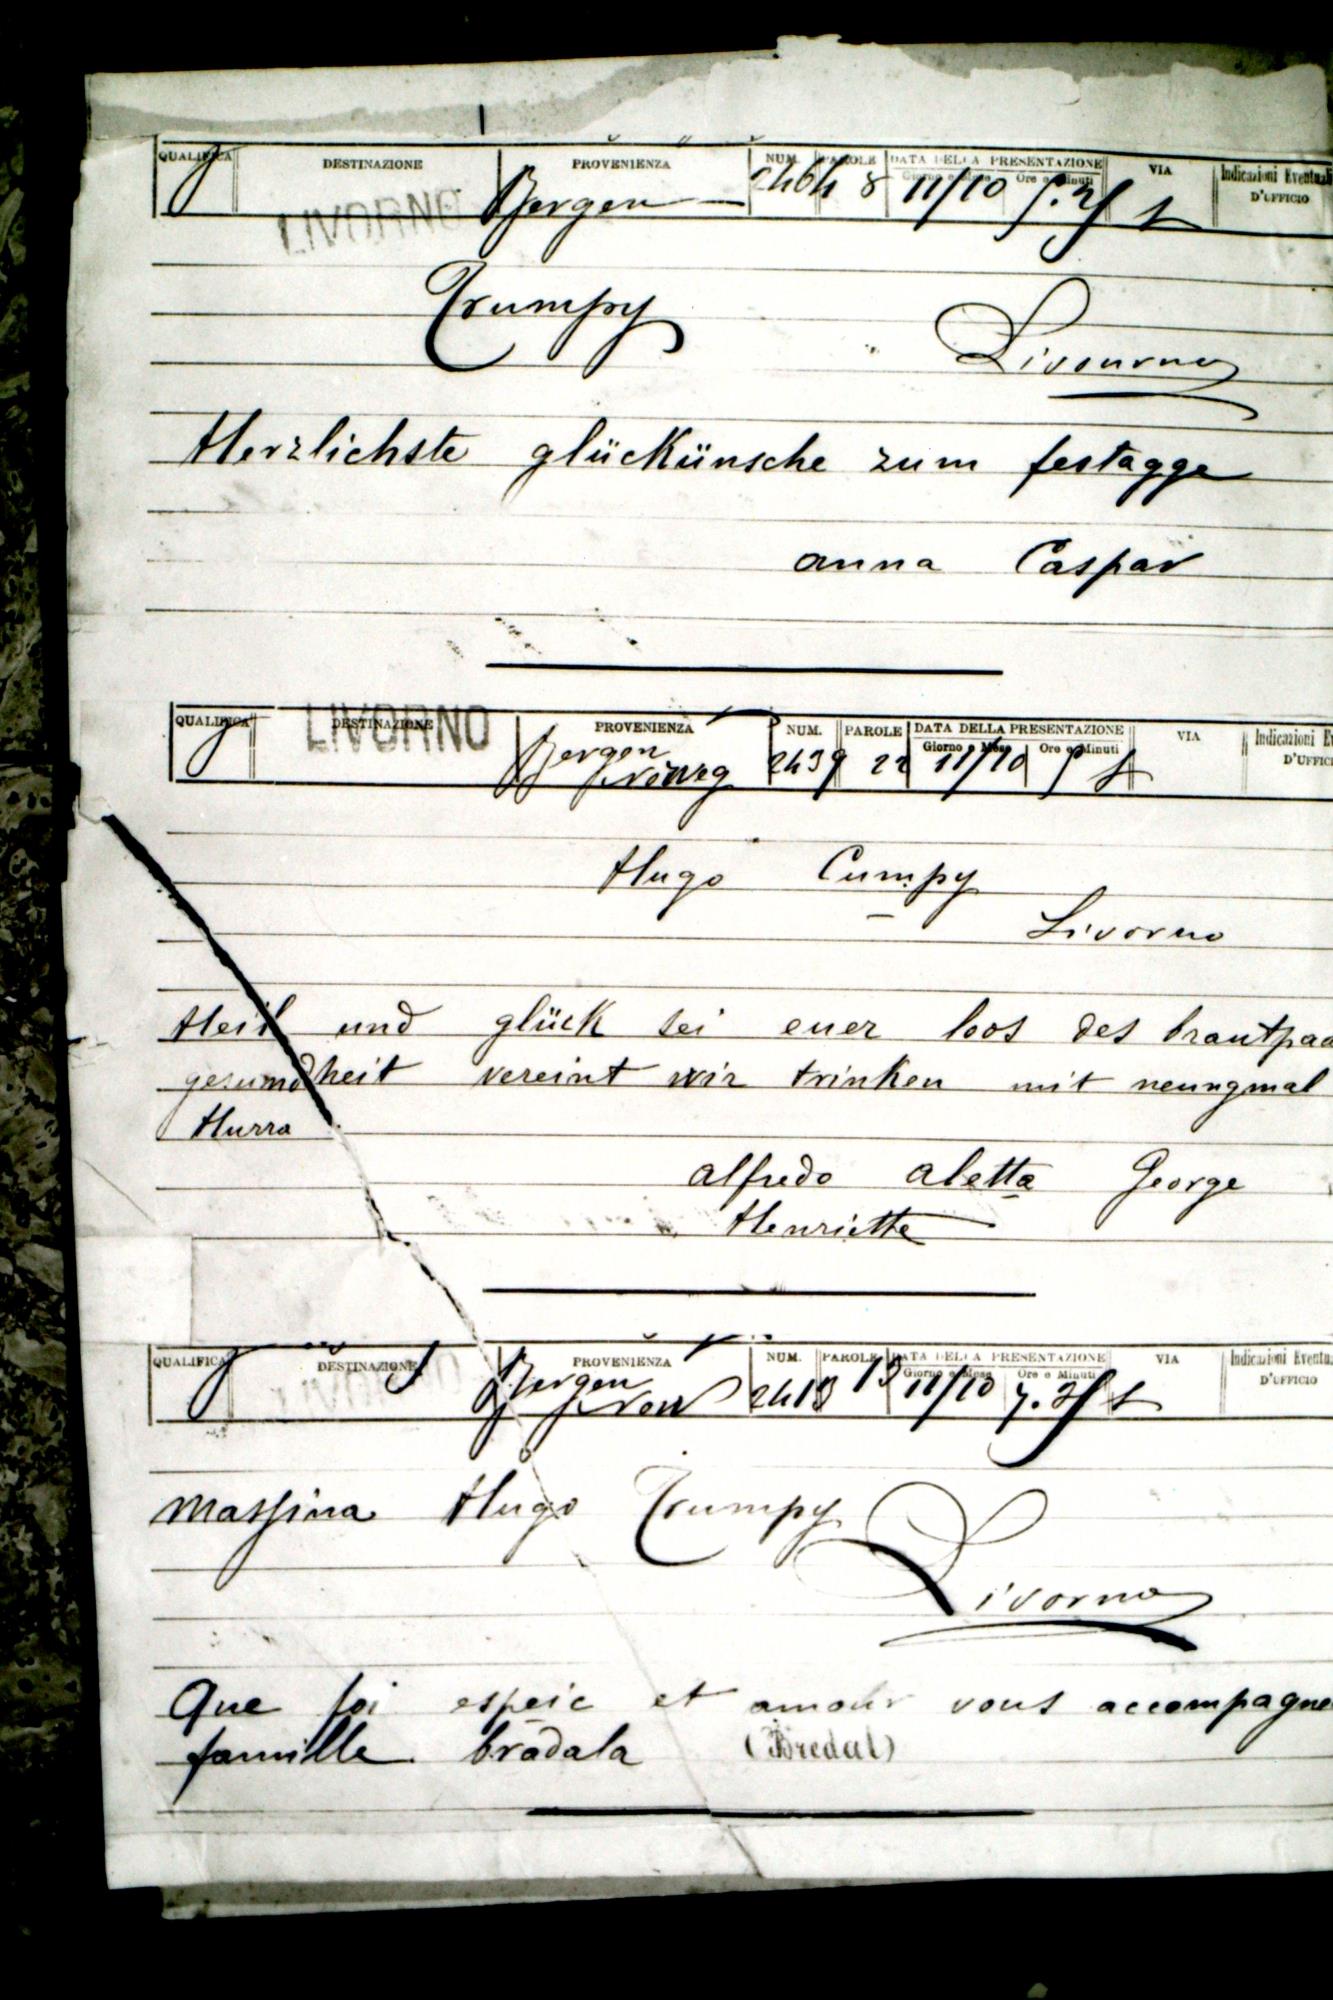 QUALIFICA DESTINAZIONE PROVENIENZA NUM. PAROLE DATA DELLA PRESENTAZIONE VIA Indicazioni Eventuali
Giorno e Mese Ore e Minuti D'UFFICIO
LIVORNO Bergen 8 11/10
Trumpy Livourno
Herzlichste glückünsche zum festagge
anna Caspar
QUALIFICA DESTINAZIONE PROVENIENZA NUM. PAROLE DATA DELLA PRESENTAZIONE VIA Indicazioni Ev
Giorno e Mese Ore e Minuti D'UFFICI
LIVORNO Bergen 2439 22 11/10
Hugo Cumpy
Livorno
Heil und glück sei euer loos des brautpaa
gesumdheit vereint wir trinken mit neungmal
Hurra
alfredo aletta George
Henriette
QUALIFICA DESTINAZIONE PROVENIENZA NUM. PAROLE DATA DELLA PRESENTAZIONE VIA Indicazioni Eventu
Giorno e Mese Ore e Minuti D'UFFICIO
LIVORNO Bergen 2413 13 11/10
Massina Hugo Trumpy
Livorno
Que foi espeic et amour vous accompagne
famille bradala (Bredal)